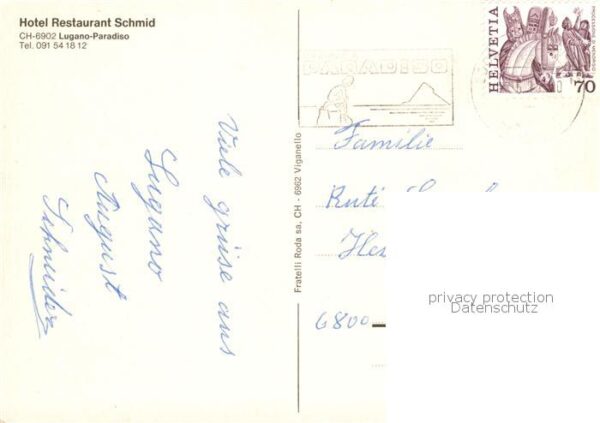 Hotel Restaurant Schmid
CH-6902 Lugano-Paradiso
Tel. 091 54 18 12
Viele grüse aus
Lugano
August
Schneider
Fratelli Roda sa, CH - 6962 Viganello
PARADISO
HELVETIA
70
Familie
Ruté
6800
privacy protection
Datenschutz